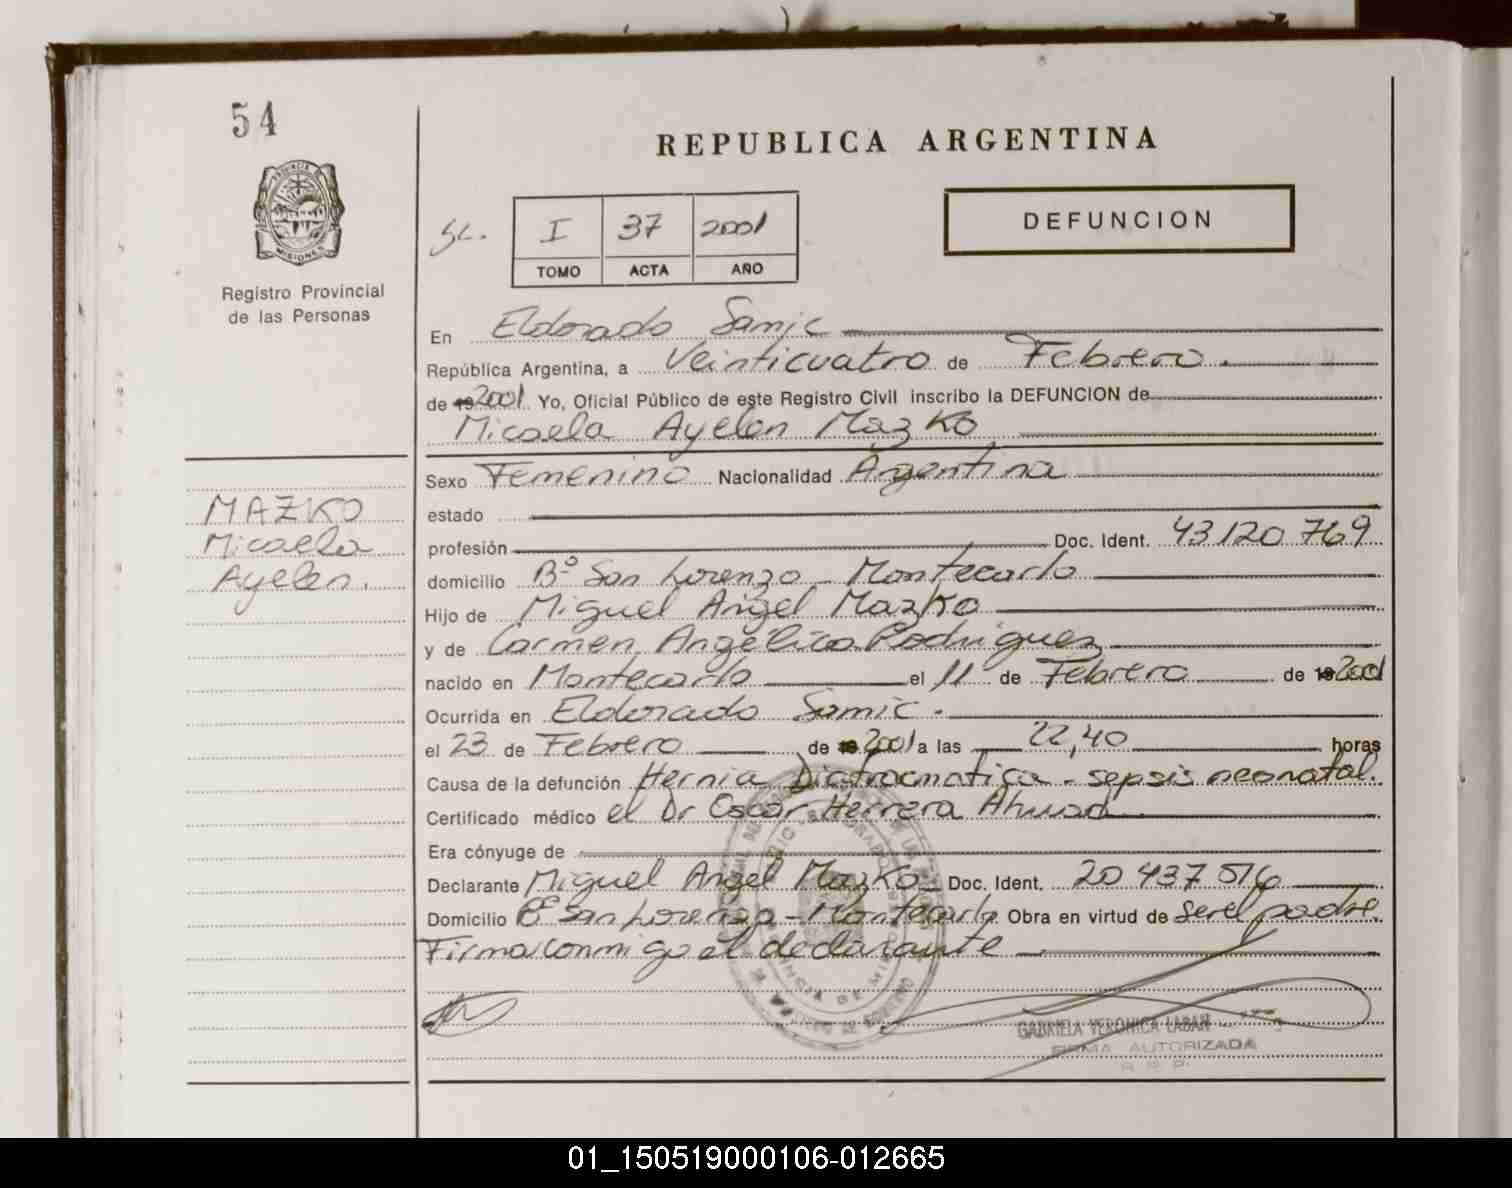 54
REPUBLICA ARGENTINA
PROVINCIA DE
MISIONES
Registro Provincial
de las Personas
SL.
I 37 2001
TOMO ACTA AÑO
DEFUNCION
En Eldorado Samic
República Argentina, a Veinticuatro de Febrero.
de 19 2001 Yo, Oficial Público de este Registro Civil inscribo la DEFUNCION de
Micaela Ayelen Mazko
Sexo Femenino Nacionalidad Argentina
estado
profesión Doc. Ident. 43120 769
domicilio Bº San Lorenzo - Montecarlo
Hijo de Miguel Angel Mazko
y de Carmen Angélica Rodriguez
nacido en Montecarlo el 11 de Febrero de 19 2001
Ocurrida en Eldorado Samic.
el 23 de Febrero de 19 2001 a las 22,40 horas
Causa de la defunción Hernia Diafracmatica - sepsis neonatal.
Certificado médico el Dr Oscar Herrera Ahuad
Era cónyuge de
Declarante Miguel Angel Mazko Doc. Ident. 20 437 516
Domicilio Bº San Lorenzo - Montecarlo. Obra en virtud de ser el padre.
Firma conmigo el declarante
MAZKO
Micaela
Ayelen.
GABRIELA VERONICA LABAN
FIRMA AUTORIZADA
R. P. P.
01_150519000106-012665